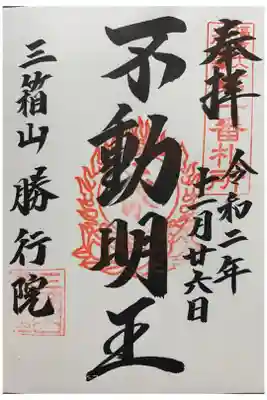 奉拝
令和二年
十一月廿六日
不動明王
三箱山 勝行院